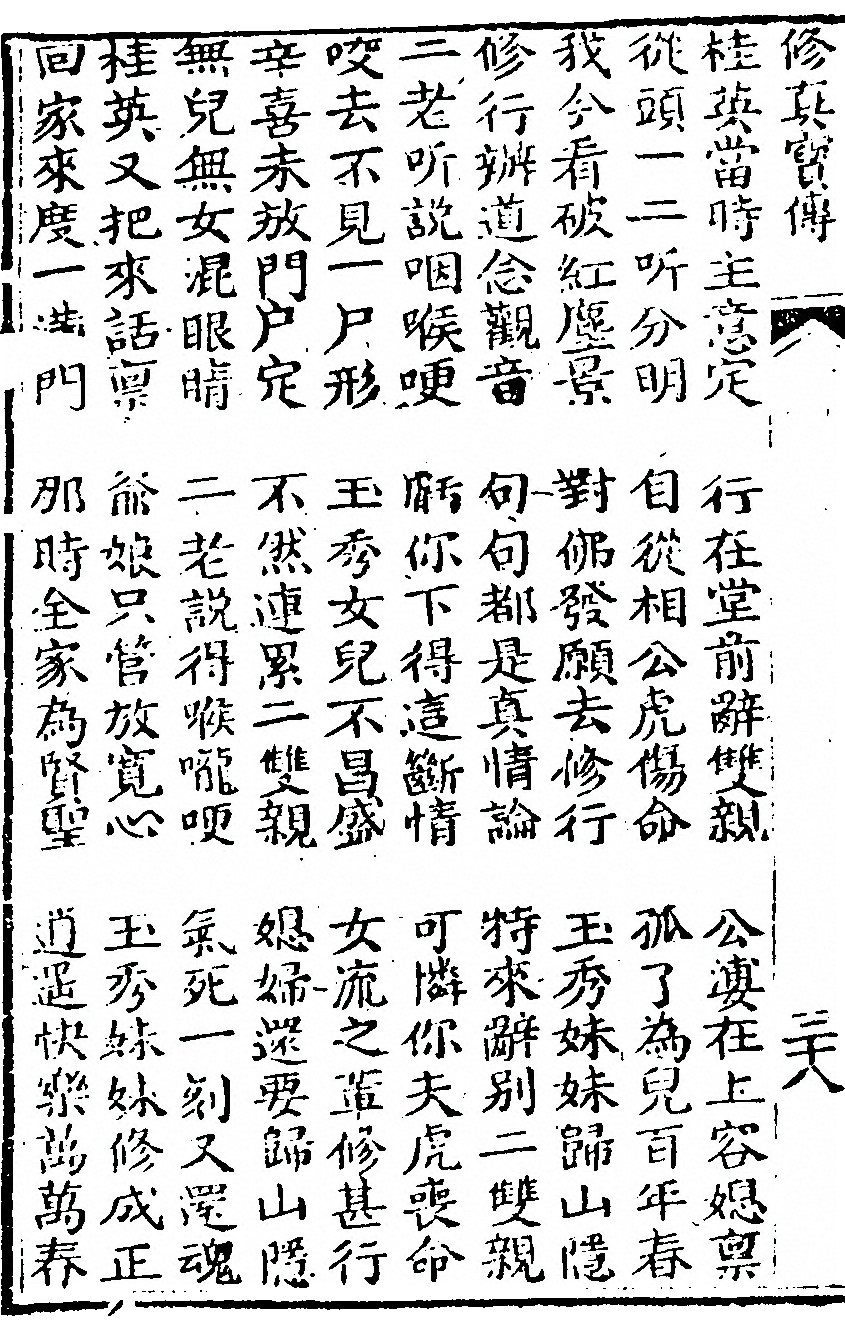 修真寳傳
三十八
桂英當時主意定 行在堂前辭雙親 公婆在上容媳禀
從頭一二听分明 自從相公虎傷命 孤了為兒百年春
我今看破紅塵景 對佛發願去修行 玉秀妹妹歸山隱
修行辦道念觀音 句句都是真情論 特來辭别二雙親
二老听説咽喉哽 虧你下得這斷情 可憐你夫虎喪命
咬去不見一尸形 玉秀女兒不昌盛 女流之輩修甚行
辛喜未放門户定 不然連累二雙親 媳婦還要歸山隱
無兒無女混眼睛 二老説得喉嚨哽 氣死一刻又還魂
桂英又把來話禀 爺娘只管放寬心 玉秀妹妹修成正
回家來度一满門 那時全家為賢聖 逍遥快樂萬萬春